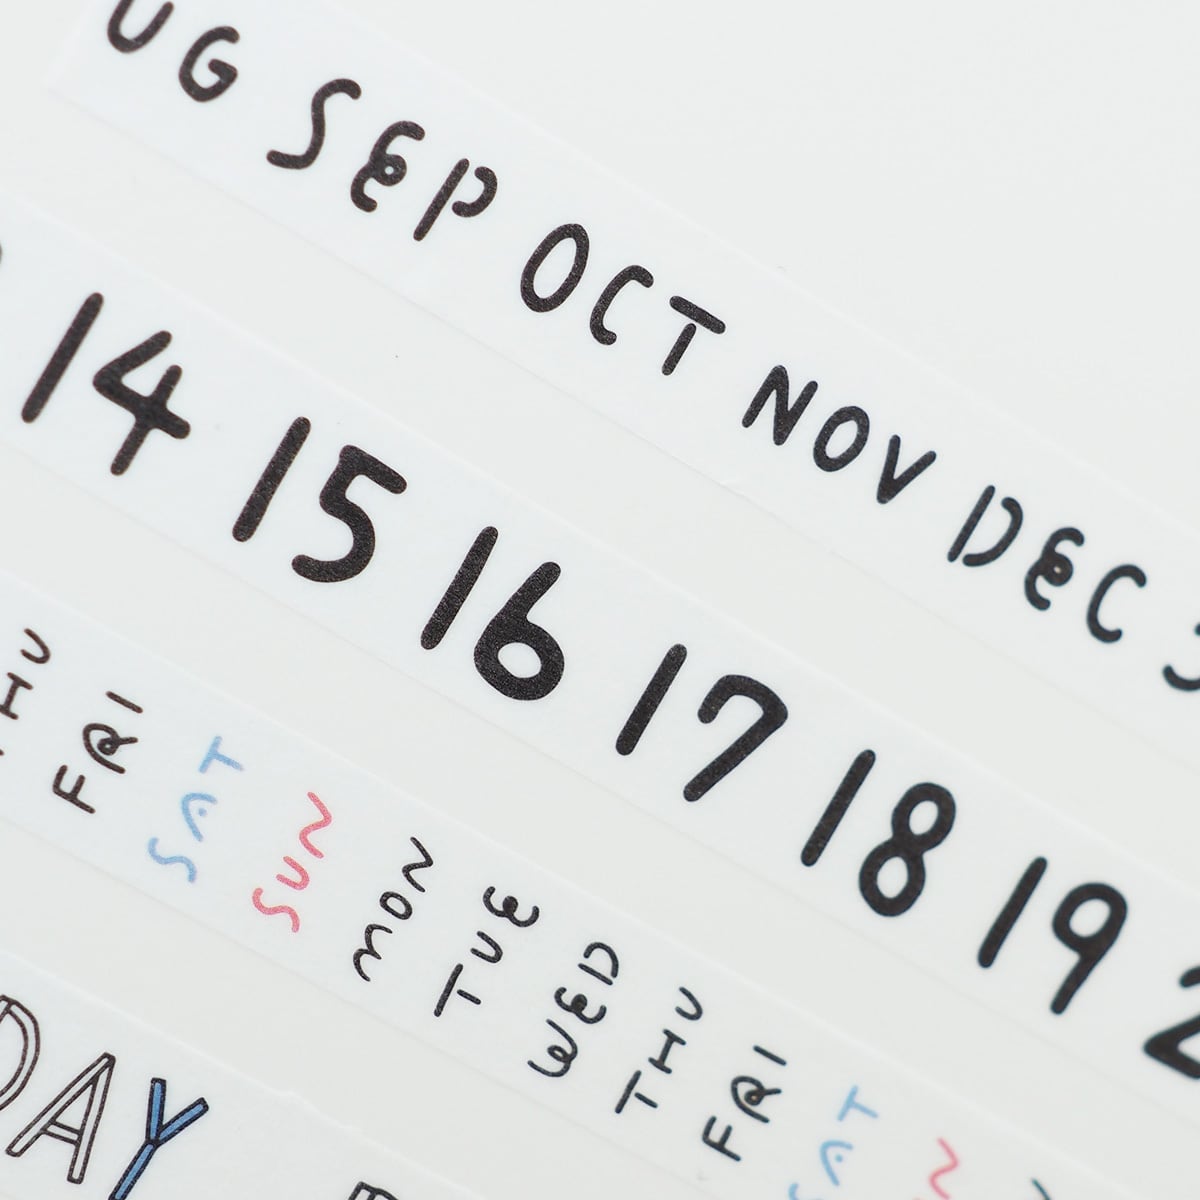 UG SEP OCT NOV DEC
14 15 16 17 18 19 2
THU FRI SAT SUN MON TUE WED THU FRI SAT
DAY